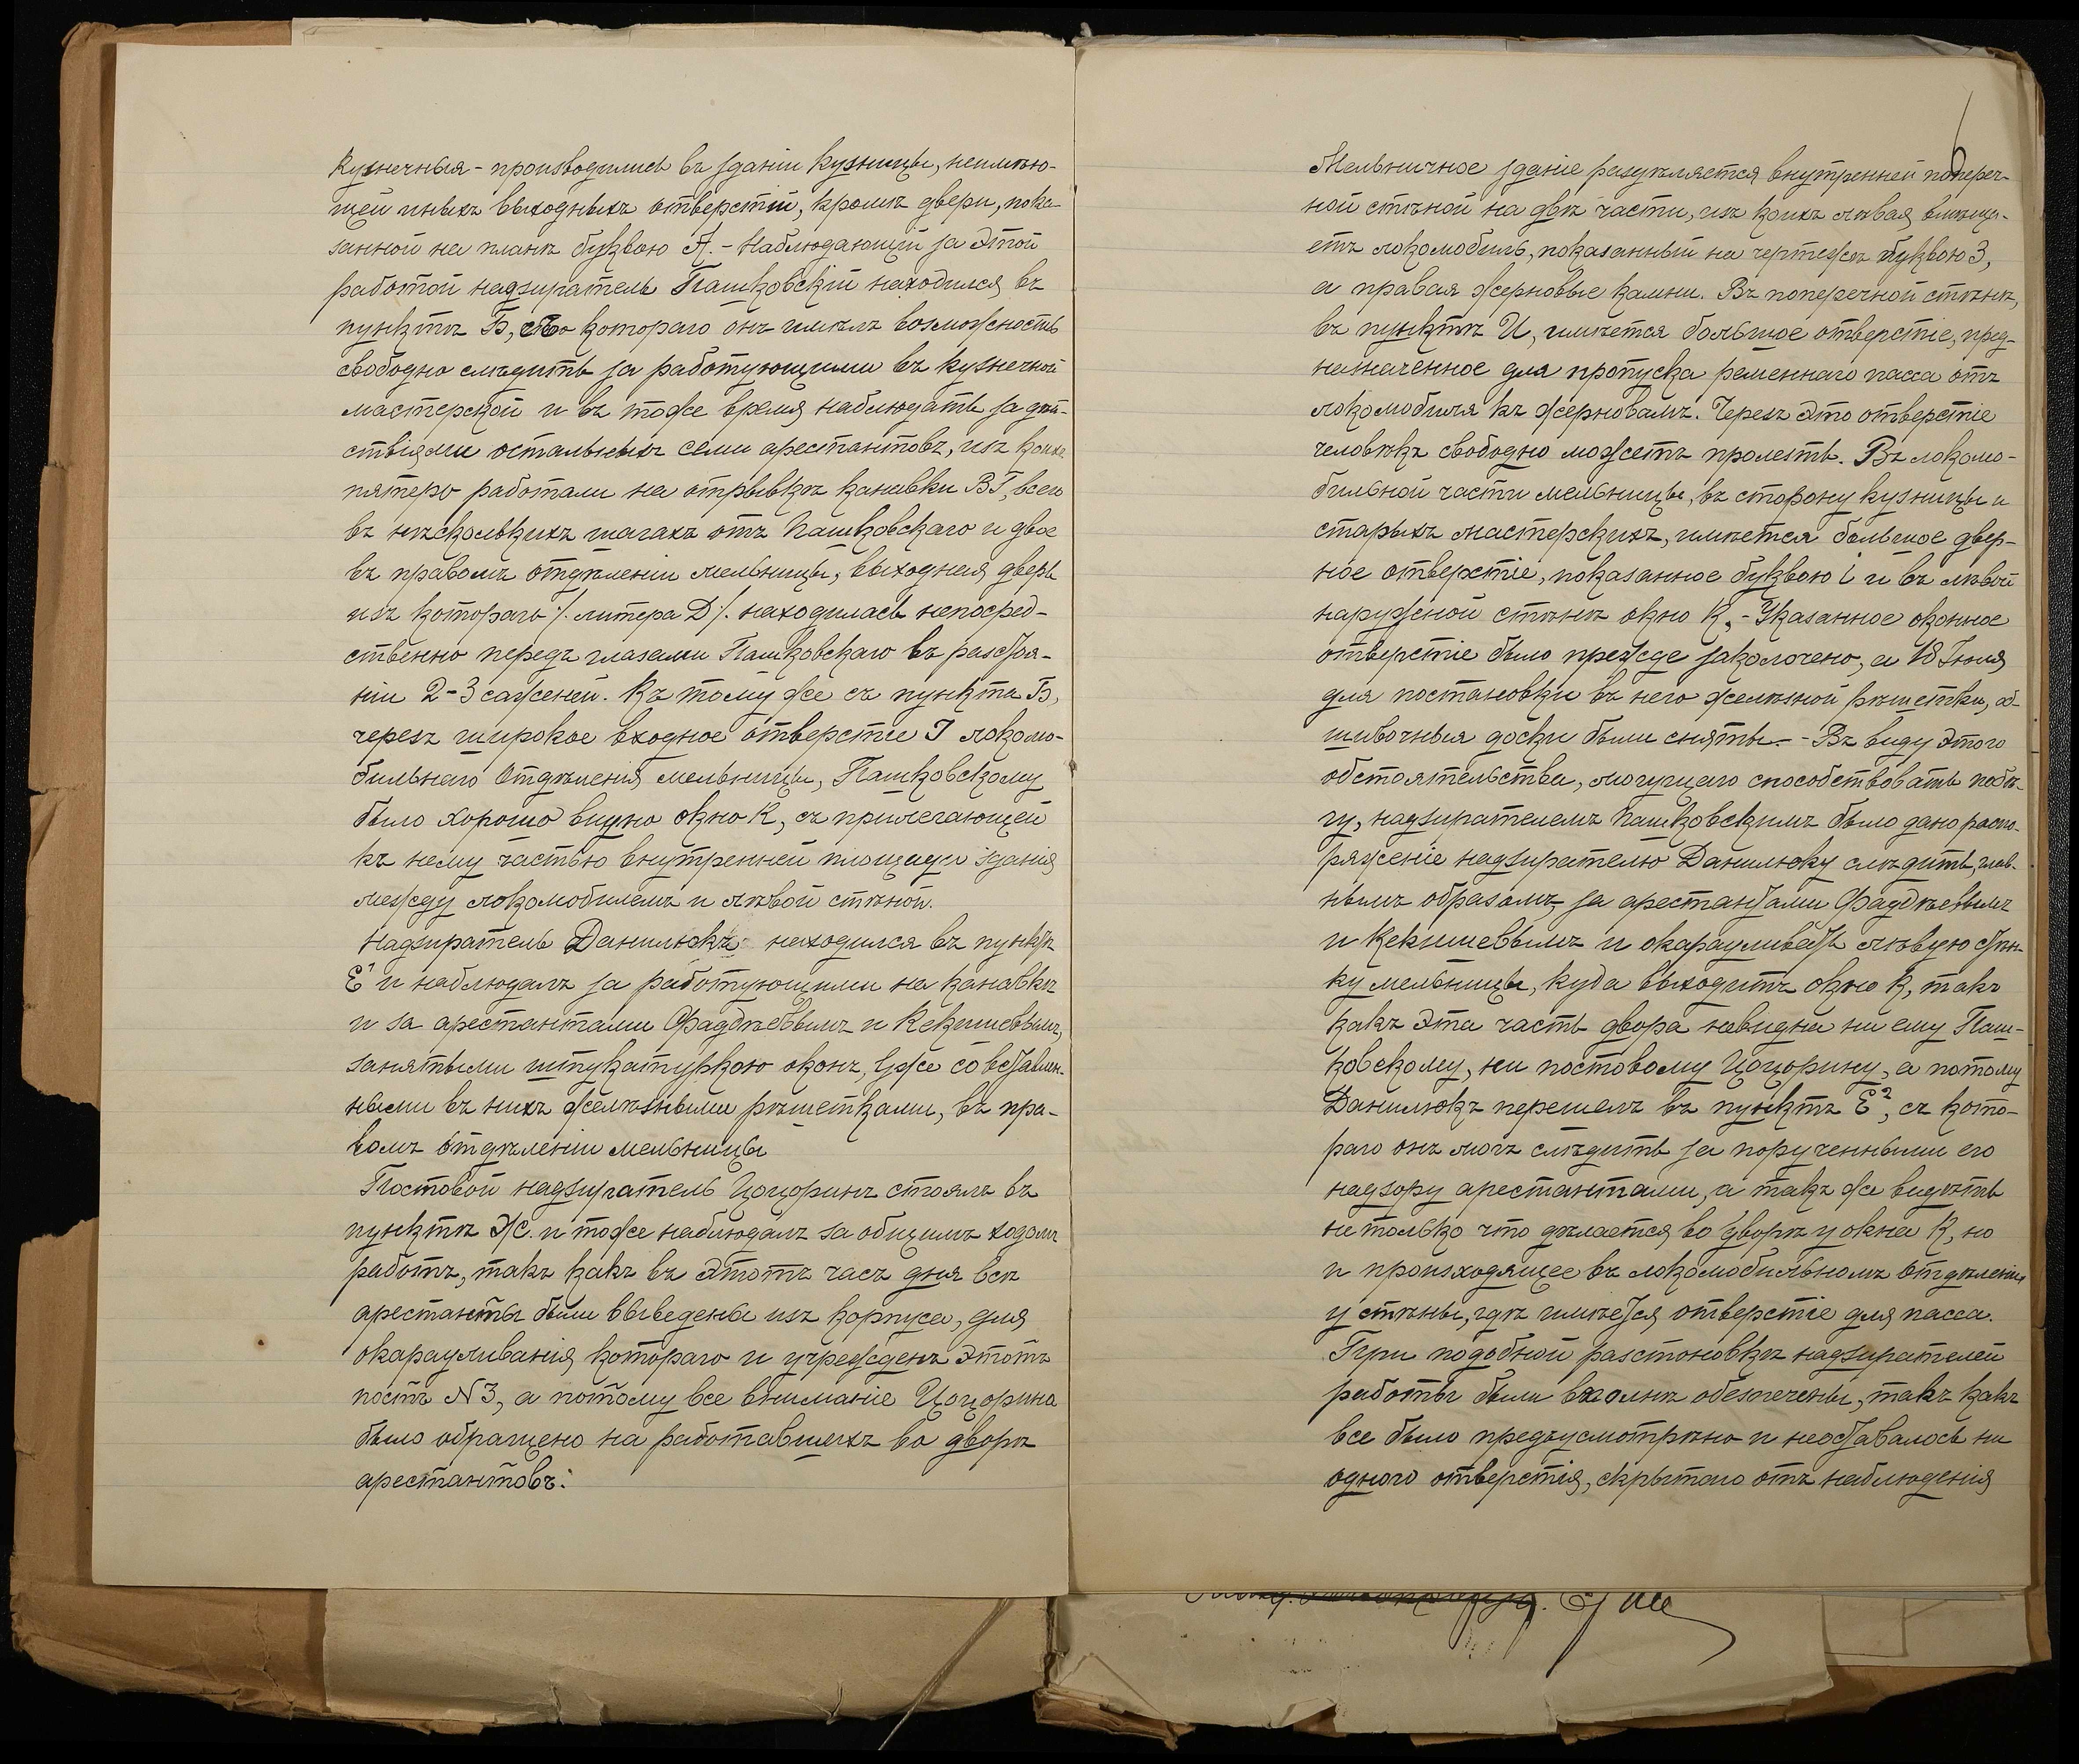 кузнечныя - производились въ зданiи кузницы, неимѣю-
щей иныхъ выходныхъ отверстiй, кромѣ двери, пока-
занной на планѣ буквою А. - Наблюдающiй за этой
работой надзиратель Пашковскiй находился въ
пунктѣ Б, со котораго онъ имѣлъ возможность
свободно слѣдить за работующими въ кузнечной
мастерской и въ тоже время наблюдать за дѣй-
ствiями остальныхъ семи арестантовъ, изъ коихъ
пятеро работали на отрывкѣ канавки ВГ, всего
въ нѣсколькихъ шагахъ отъ Пашковскаго и двое
въ правомъ отдѣленiи мельницы, выходная дверь
изъ котораго /. литера Д /. находилась непосред-
ственно передъ глазами Пашковскаго въ разстоя-
нiи 2-3 саженей. Къ тому же съ пункта Б,
черезъ широкое входное отверстiе I локомо-
бильнаго отдѣленiя мельницы, Пашковскому
было хорошо видно окно К, съ прилегающей
къ нему частью внутренней площади зданiя
между локомобилемъ и лѣвой стѣной.
Надзиратель Данилюкъ находился въ пунктѣ
Е¹ и наблюдалъ за работующими на канавкѣ
и за арестантами Фаддѣевымъ и Кекишевымъ,
занятыми штукатуркою оконъ, уже со вставлен-
ными въ нихъ желѣзными рѣшетками, въ пра-
вомъ отдѣленiи мельницы
Постовой надзиратель Цоцоринъ стоялъ въ
пунктѣ Ж. и тоже наблюдалъ за общимъ ходомъ
работъ, такъ какъ въ этотъ часъ дня всѣ
арестанты были выведены изъ корпуса, для
окарауливанiя котораго и учрежденъ этотъ
постъ N 3, а потому все вниманiе Цоцорина
было обращено на работавшихъ во дворѣ
арестантовъ.
6
Мельничное зданiе раздѣляется внутренней попереч-
ной стѣной на двѣ части, изъ коихъ лѣвая вмѣща-
етъ локомобиль, показанный на чертежѣ буквою З,
а правая жерновые камни. Въ поперечной стѣнѣ,
въ пунктѣ И, имѣется большое отверстiе, пред-
назначенное для пропуска ременнаго пасса отъ
локомобиля къ жерновамъ. Черезъ это отверстiе
человѣкъ свободно можетъ пролезть. Въ локомо-
бильной части мельницы, въ сторону кузницы и
старыхъ мастерскихъ, имѣется большое двер-
ное отверстiе, показанное буквою i и въ лѣвой
наружной стѣнѣ окно К, - Указанное оконное
отверстiе было прежде заколочено, а 18 Iюля
для постановки въ него желѣзной рѣшетки, об-
шивочныя доски были сняты. - Въ виду этого
обстоятельства, могущаго способствовать побѣ-
гу, надзирателемъ Пашковскимъ было дано распо-
ряженiе надзирателю Данилюку слѣдить, глав-
нымъ образомъ, за арестантами Фаддѣевымъ
и Кекишевымъ и окарауливать лѣвую стѣн-
ку мельницы, куда выходитъ окно К, такъ
какъ эта часть двора невидна ни ему Паш-
ковскому, ни постовому Цоцорину, а потому
Данилюкъ перешелъ въ пунктъ Е², съ кото-
раго онъ могъ слѣдить за порученными его
надзору арестантами, а такъ же видѣть
не только что дѣлается во дворѣ у окна К, но
и происходящее въ локомобильномъ отдѣленiи
у стѣны, гдѣ имѣется отверстiе для пасса.
При подобной разстоновкѣ надзирателей
работы были вполнѣ обезпечены, такъ какъ
все было предъусмотрѣно и неоставалось ни
одного отверстiя, скрытаго отъ наблюденiя